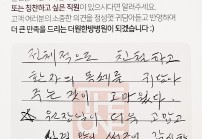 또는 칭찬하고 싶은 직원이 있으시다면 알려주세요.
고객 여러분의 소중한 의견을 정성껏 귀담아듣고 반영하여
더 큰 만족을 드리는 더원한방병원이 되겠습니다:)
전체적으로 친절하고
환자의 목소리를
주는 것이 고마웠다.
원장님이 더욱 고맙고